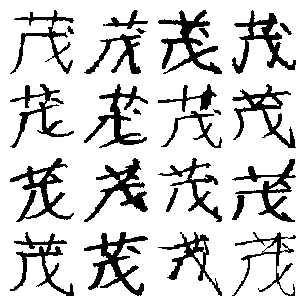 茂茂茂茂
茂茂茂茂
茂茂茂茂
茂茂茂茂